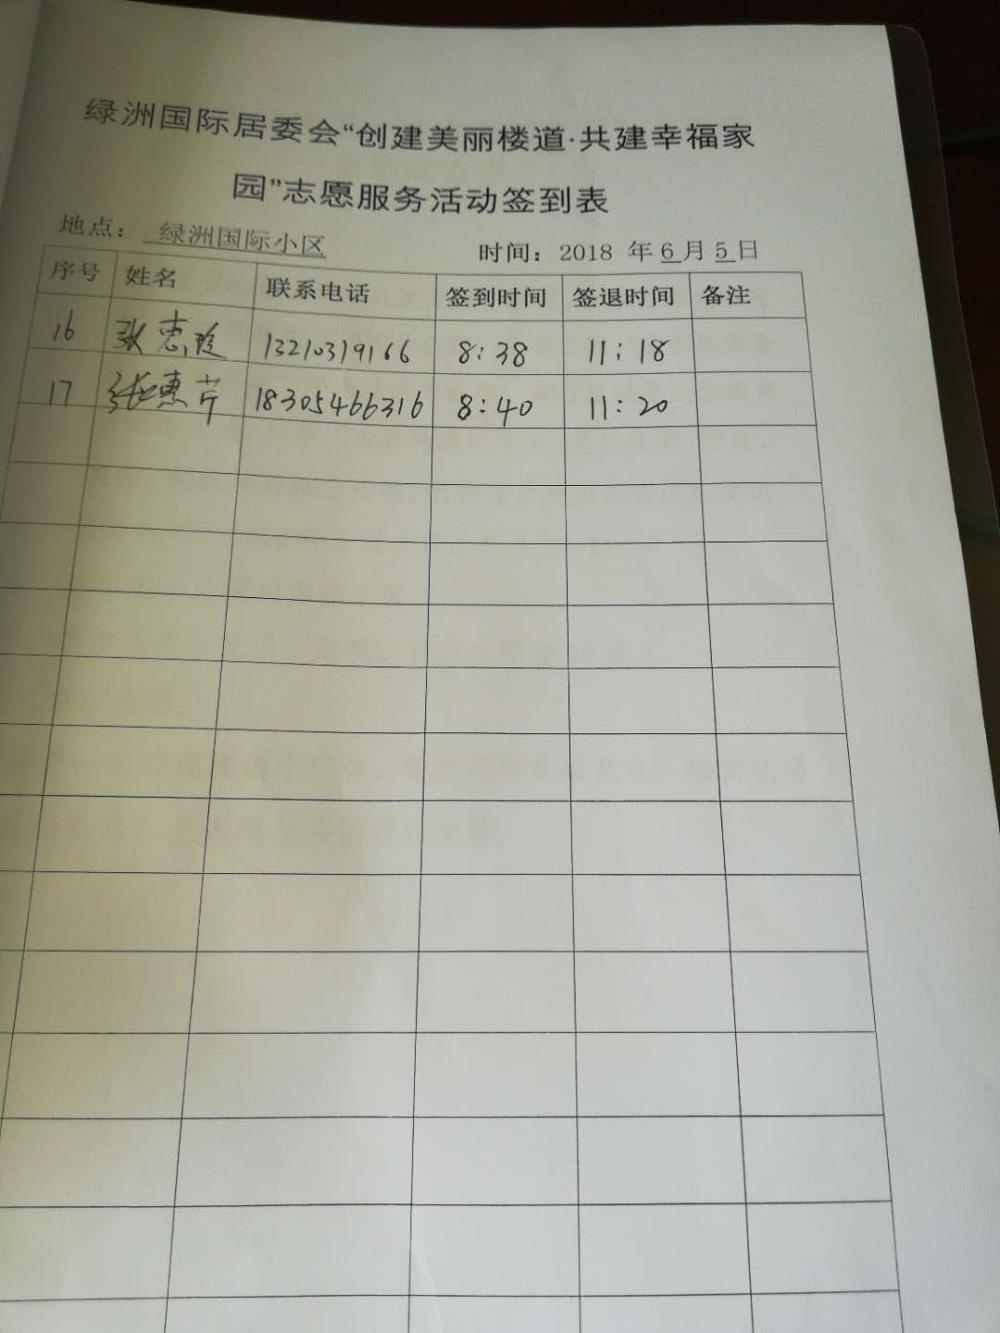 绿洲国际居委会“创建美丽楼道·共建幸福家
园”志愿服务活动签到表
地点： 绿洲国际小区 时间：2018 年 6 月 5 日
序号 姓名 联系电话 签到时间 签退时间 备注
16 13210319166 8:38 11:18
17 张惠芹 18305466316 8:40 11:20